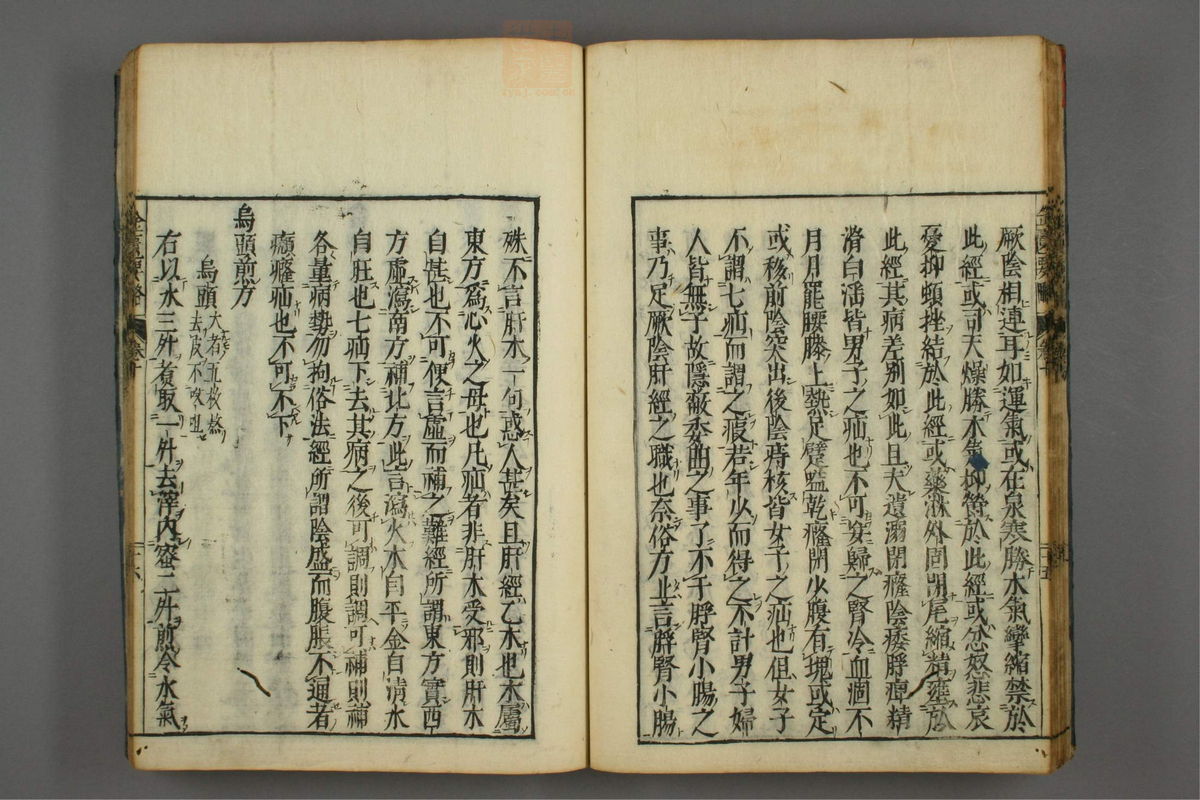 厥陰相連耳如運氣或在泉寒勝木氣攣縮禁於
此經或司天燥勝木氣抑鬱於此經或忿怒悲哀
憂抑頓挫結於此經或藥淋外固閉尾縮精壅於
此經其病差別如此且夫遺溺閉癃陰痿脬痺精
滑白淫皆男子之疝也不可妄歸之腎冷血涸不
月月罷腰膝上熱足躄嗌乾癃閉少腹有塊或定
或移前陰突出後陰痔核皆女子之疝也但女子
不謂七疝而謂之瘕若年少而得之不計男子婦
人皆無子故隱蔽委曲之事了不干脬腎小腸之
事乃足厥陰肝經之職也奈俗方止言脬腎小腸
殊不言肝木一句惑人甚矣且肝經乙木也木屬
東方爲心火之母也凡疝者非肝木受邪則肝木
自甚也不可便言虛而補之難經所謂東方實西
方虛瀉南方補北方此言瀉火木自平金自清水
自旺也七疝下去其病之後可調則調可補則補
各量病勢勿拘俗法經所謂陰盛而腹脹不通者
癲癃疝也不可不下
烏頭煎方
烏頭
大者五枚熬
去皮不咬咀
右以水三升煑取一升去滓内蜜二升煎令水氣